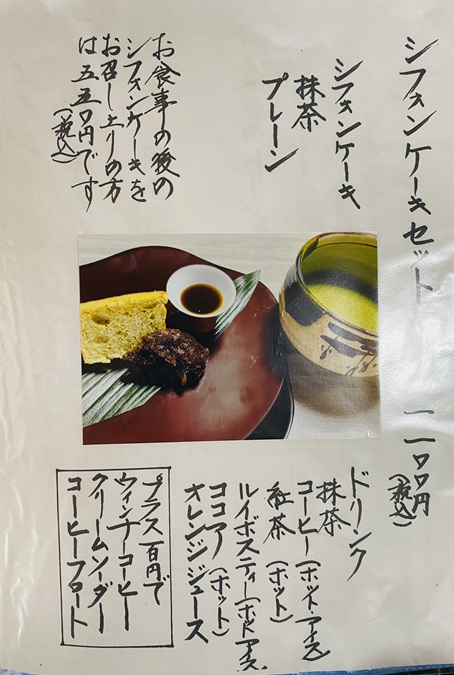 シフォンケーキセット 一一〇〇円(税込)
シフォンケーキ
抹茶
プレーン
お食事の後の
シフォンケーキを
お召し上りの方
は五五〇円です
(税込)
ドリンク
抹茶
コーヒー(ホット・アイス)
紅茶(ホット)
ルイボスティー(ホット・アイス)
ココア(ホット)
オレンジジュース
プラス百円で
ウィンナーコーヒー
クリームソーダー
コーヒーフロート